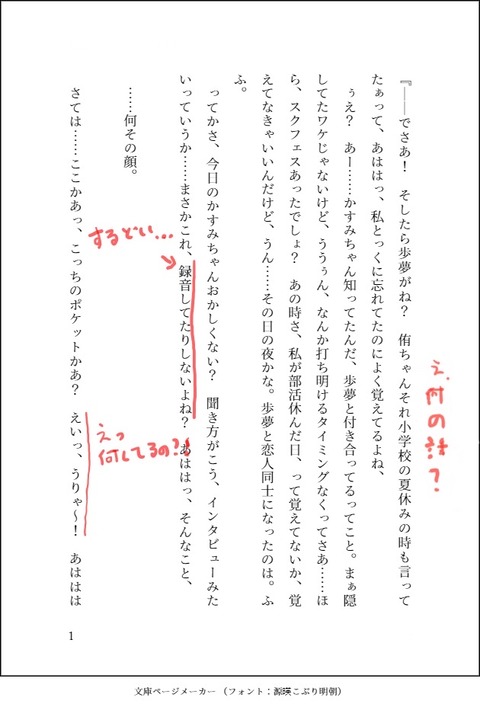 『――でさあ！　そしたら歩夢がね？　侑ちゃんそれ小学校の夏休みの時も言って
たぁって、あははっ、私とっくに忘れてたのによく覚えてるよね、
え、何の話？
　ぅえ？　あー……かすみちゃん知ってたんだ、歩夢と付き合ってるってこと。まぁ隠
してたワケじゃないけど、ううぅん、なんか打ち明けるタイミングなくってさあ……ほ
ら、スクフェスあったでしょ？　あの時さ、私が部活休んだ日、って覚えてないか、覚
えてなきゃいいんだけど、うん……その日の夜かな。歩夢と恋人同士になったのは。ふ
ふ。
　ってかさ、今日のかすみちゃんおかしくない？　聞き方がこう、インタビューみた
いっていうか……まさかこれ、録音してたりしないよね？　あははっ、そんなこと、
するどい…
　……何その顔。
　さては……ここかあっ、こっちのポケットかあ？　えいっ、うりゃ～！　あははは
えっ
何してるの?!
1
文庫ページメーカー（フォント：源暎こぶり明朝）